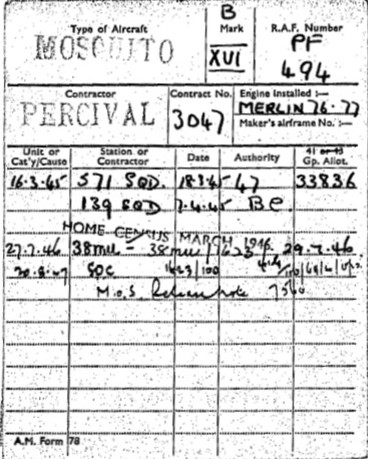 Type of Aircraft
MOSQUITO
B
Mark
XVI
R.A.F. Number
PF
494
Contractor
PERCIVAL
Contract No.
3047
Engine installed :—
MERLIN 76-77
Maker's airframe No. :—
Unit or Cat'y/Cause
Station or Contractor
Date
Authority
41 or 43 Gp. Allot.
16.3.45 571 SQD. 18.3.45 47 33836
139 SQD 7.4.45 BC
HOME CENSUS MARCH 1946
27.7.46 38MU - 38MU 29.7.46
SOC
M.o.S.
A.M. Form 78